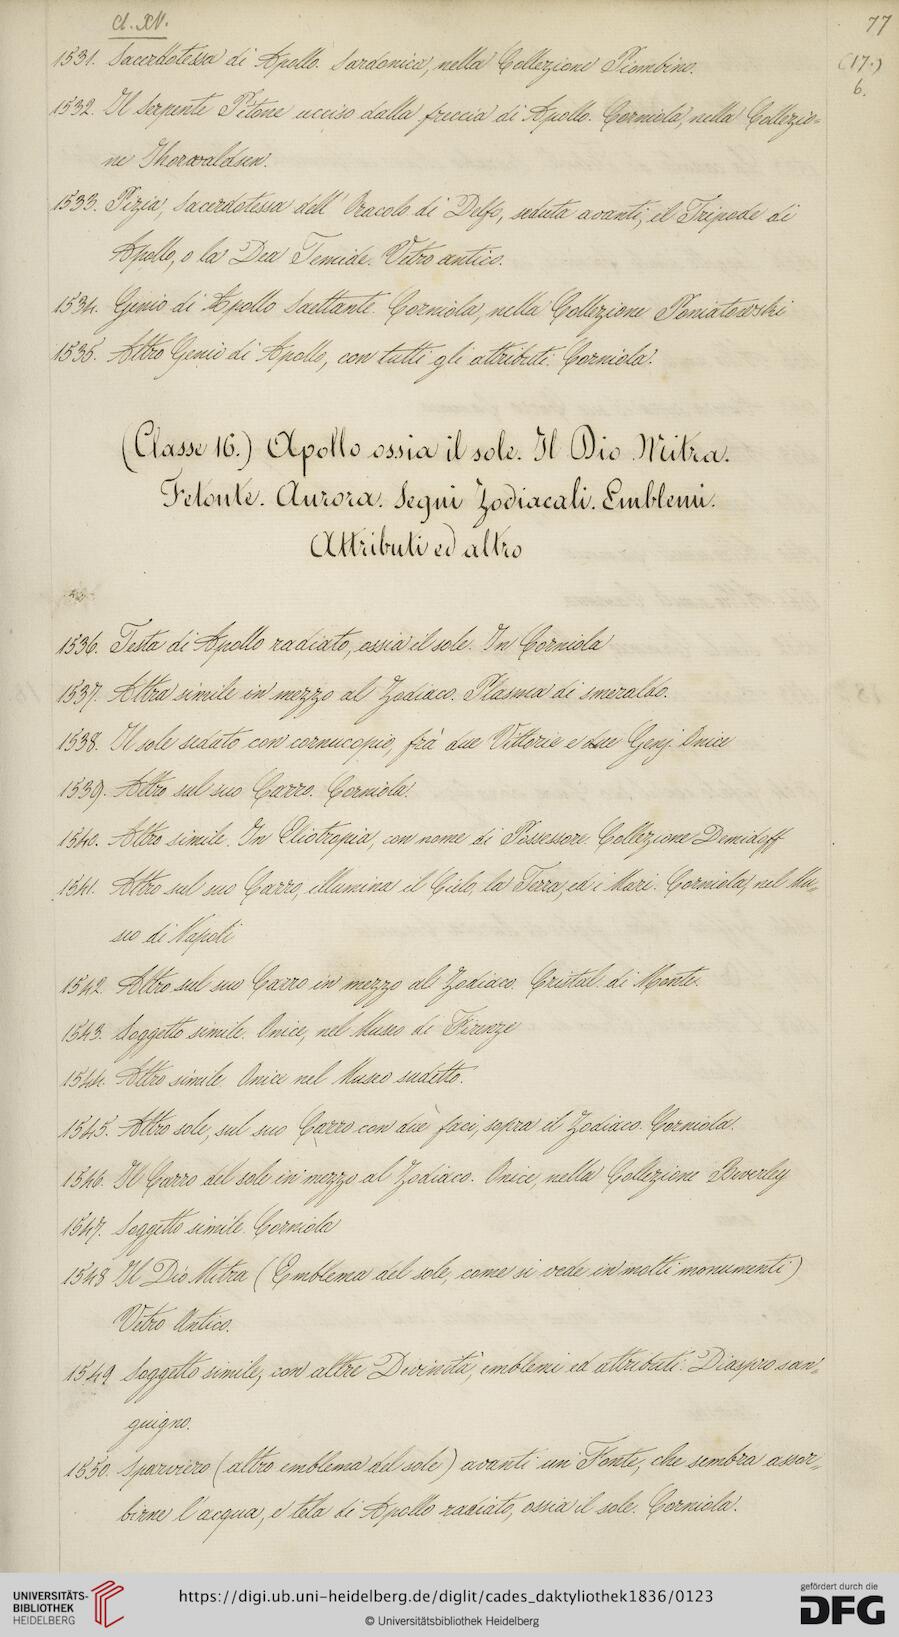 Cl. XV.
77
(17.)
6.
1531. Sacerdotessa di Apollo. Sardonica, nella Collezione Piombino.
1532. Il Serpente Pitone ucciso dalla freccia di Apollo. Corniola, nella Collezio=
ne Thorwaldsen.
1533. Pizia, Sacerdotessa dell' Oracolo di Delfo, seduta avanti, il Tripode di
Apollo, o la Dea Temide. Vetro antico.
1534. Genio di Apollo Saettante. Corniola, nella Collezione Poniatowski
1535. Altro Genio di Apollo, con tutti gli attributi. Corniola.
(Classe 16.) Apollo ossia il sole. Il Dio Mitra.
Fetonte. Aurora. Segni Zodiacali. Emblemi.
Attributi ed altro
1536. Testa di Apollo radiato, ossia il sole. In Corniola
1537. Altra simile in mezzo al Zodiaco. Plasma di smeraldo.
1538. Il sole seduto con cornucopio, frà due Vittorie e due Genj. Onice
1539. Altro sul suo Carro. Corniola.
1540. Altro simile. In Eliotropia, con nome di Possessore. Collezione Demidoff
1541. Altro sul suo Carro, illumina il Cielo, la Terra, ed i Mari. Corniola, nel Mu=
seo di Napoli
1542. Altro sul suo Carro in mezzo al Zodiaco. Cristal. di Monte.
1543. Soggetto simile. Onice, nel Museo di Firenze
1544. Altro simile. Onice nel Museo sudetto.
1545. Altro sole, sul suo Carro con due faci, sopra il Zodiaco. Corniola.
1546. Il Carro del sole in mezzo al Zodiaco. Onice, nella Collezione Beverley
1547. Soggetto simile. Corniola
1548 Il Dio Mitra (Emblema del sole, come si vede in molti monumenti)
Vetro Antico.
1549 Soggetto simile, con altre Divinità, emblemi ed attributi. Diaspro san=
guigno.
1550. Sparviero (altro emblema del sole) avanti un Fonte, che sembra assor=
birne l'acqua, e testa di Apollo radiato, ossia il sole. Corniola.
UNIVERSITÄTS-
BIBLIOTHEK
HEIDELBERG
https://digi.ub.uni-heidelberg.de/diglit/cades_daktyliothek1836/0123
© Universitätsbibliothek Heidelberg
gefördert durch die
DFG